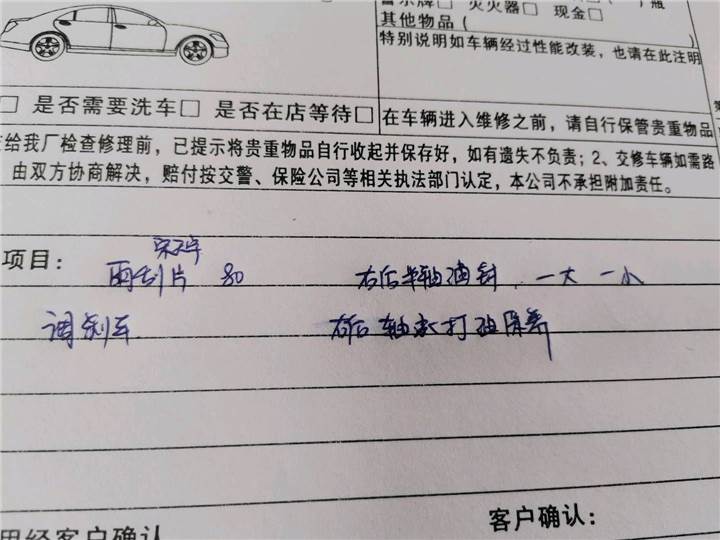 警示牌□ 灭火器□ ( )瓶
现金□
其他物品( )
特别说明如车辆经过性能改装,也请在此注明
□ 是否需要洗车□ 是否在店等待□
在车辆进入维修之前,请自行保管贵重物品
给我厂检查修理前,已提示将贵重物品自行收起并保存好,如有遗失不负责;2、交修车辆如需路
由双方协商解决,赔付按交警、保险公司等相关执法部门认定,本公司不承担附加责任。
项目:
雨刮片 80 右后半轴油封 一大 一小
调刹车 右后 轴承打油保养
客户确认:
经客户确认